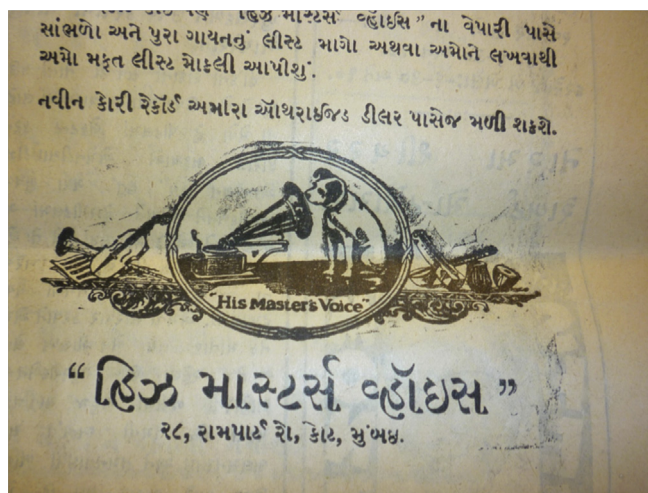 "હિઝ માસ્ટર્સ વ્હૉઈસ" ના વેપારી પાસે
સાંભળો અને પુરા ગાયનનું લીસ્ટ માગો અથવા અમોને લખવાથી
અમો મફત લીસ્ટ મોકલી આપીશું.
નવીન કોરી રેકૉર્ડ અમારા ઑથરાઈજડ ડીલર પાસેજ મળી શકશે.
"His Master's Voice"
"હિઝ માસ્ટર્સ વ્હૉઇસ"
૨૮, રામપાર્ટ રો, કોટ, મુંબઇ.